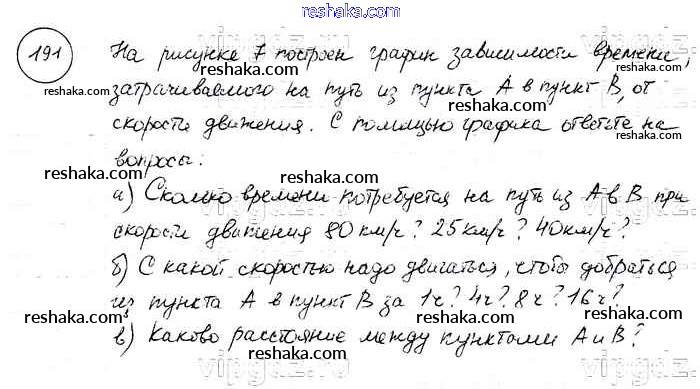 reshaka.com
191 На рисунке 7 построен график зависимости времени,
затрачиваемого на путь из пункта А в пункт В, от
скорости движения. С помощью графика ответьте на
вопросы:
а) Сколько времени потребуется на путь из А в В при
скорости движения 80 км/ч? 25 км/ч? 40 км/ч?
б) С какой скоростью надо двигаться, чтобы добраться
из пункта А в пункт В за 1ч? 4ч? 8ч? 16ч?
в) Каково расстояние между пунктами А и В?
reshaka.com
vipgdz.ru